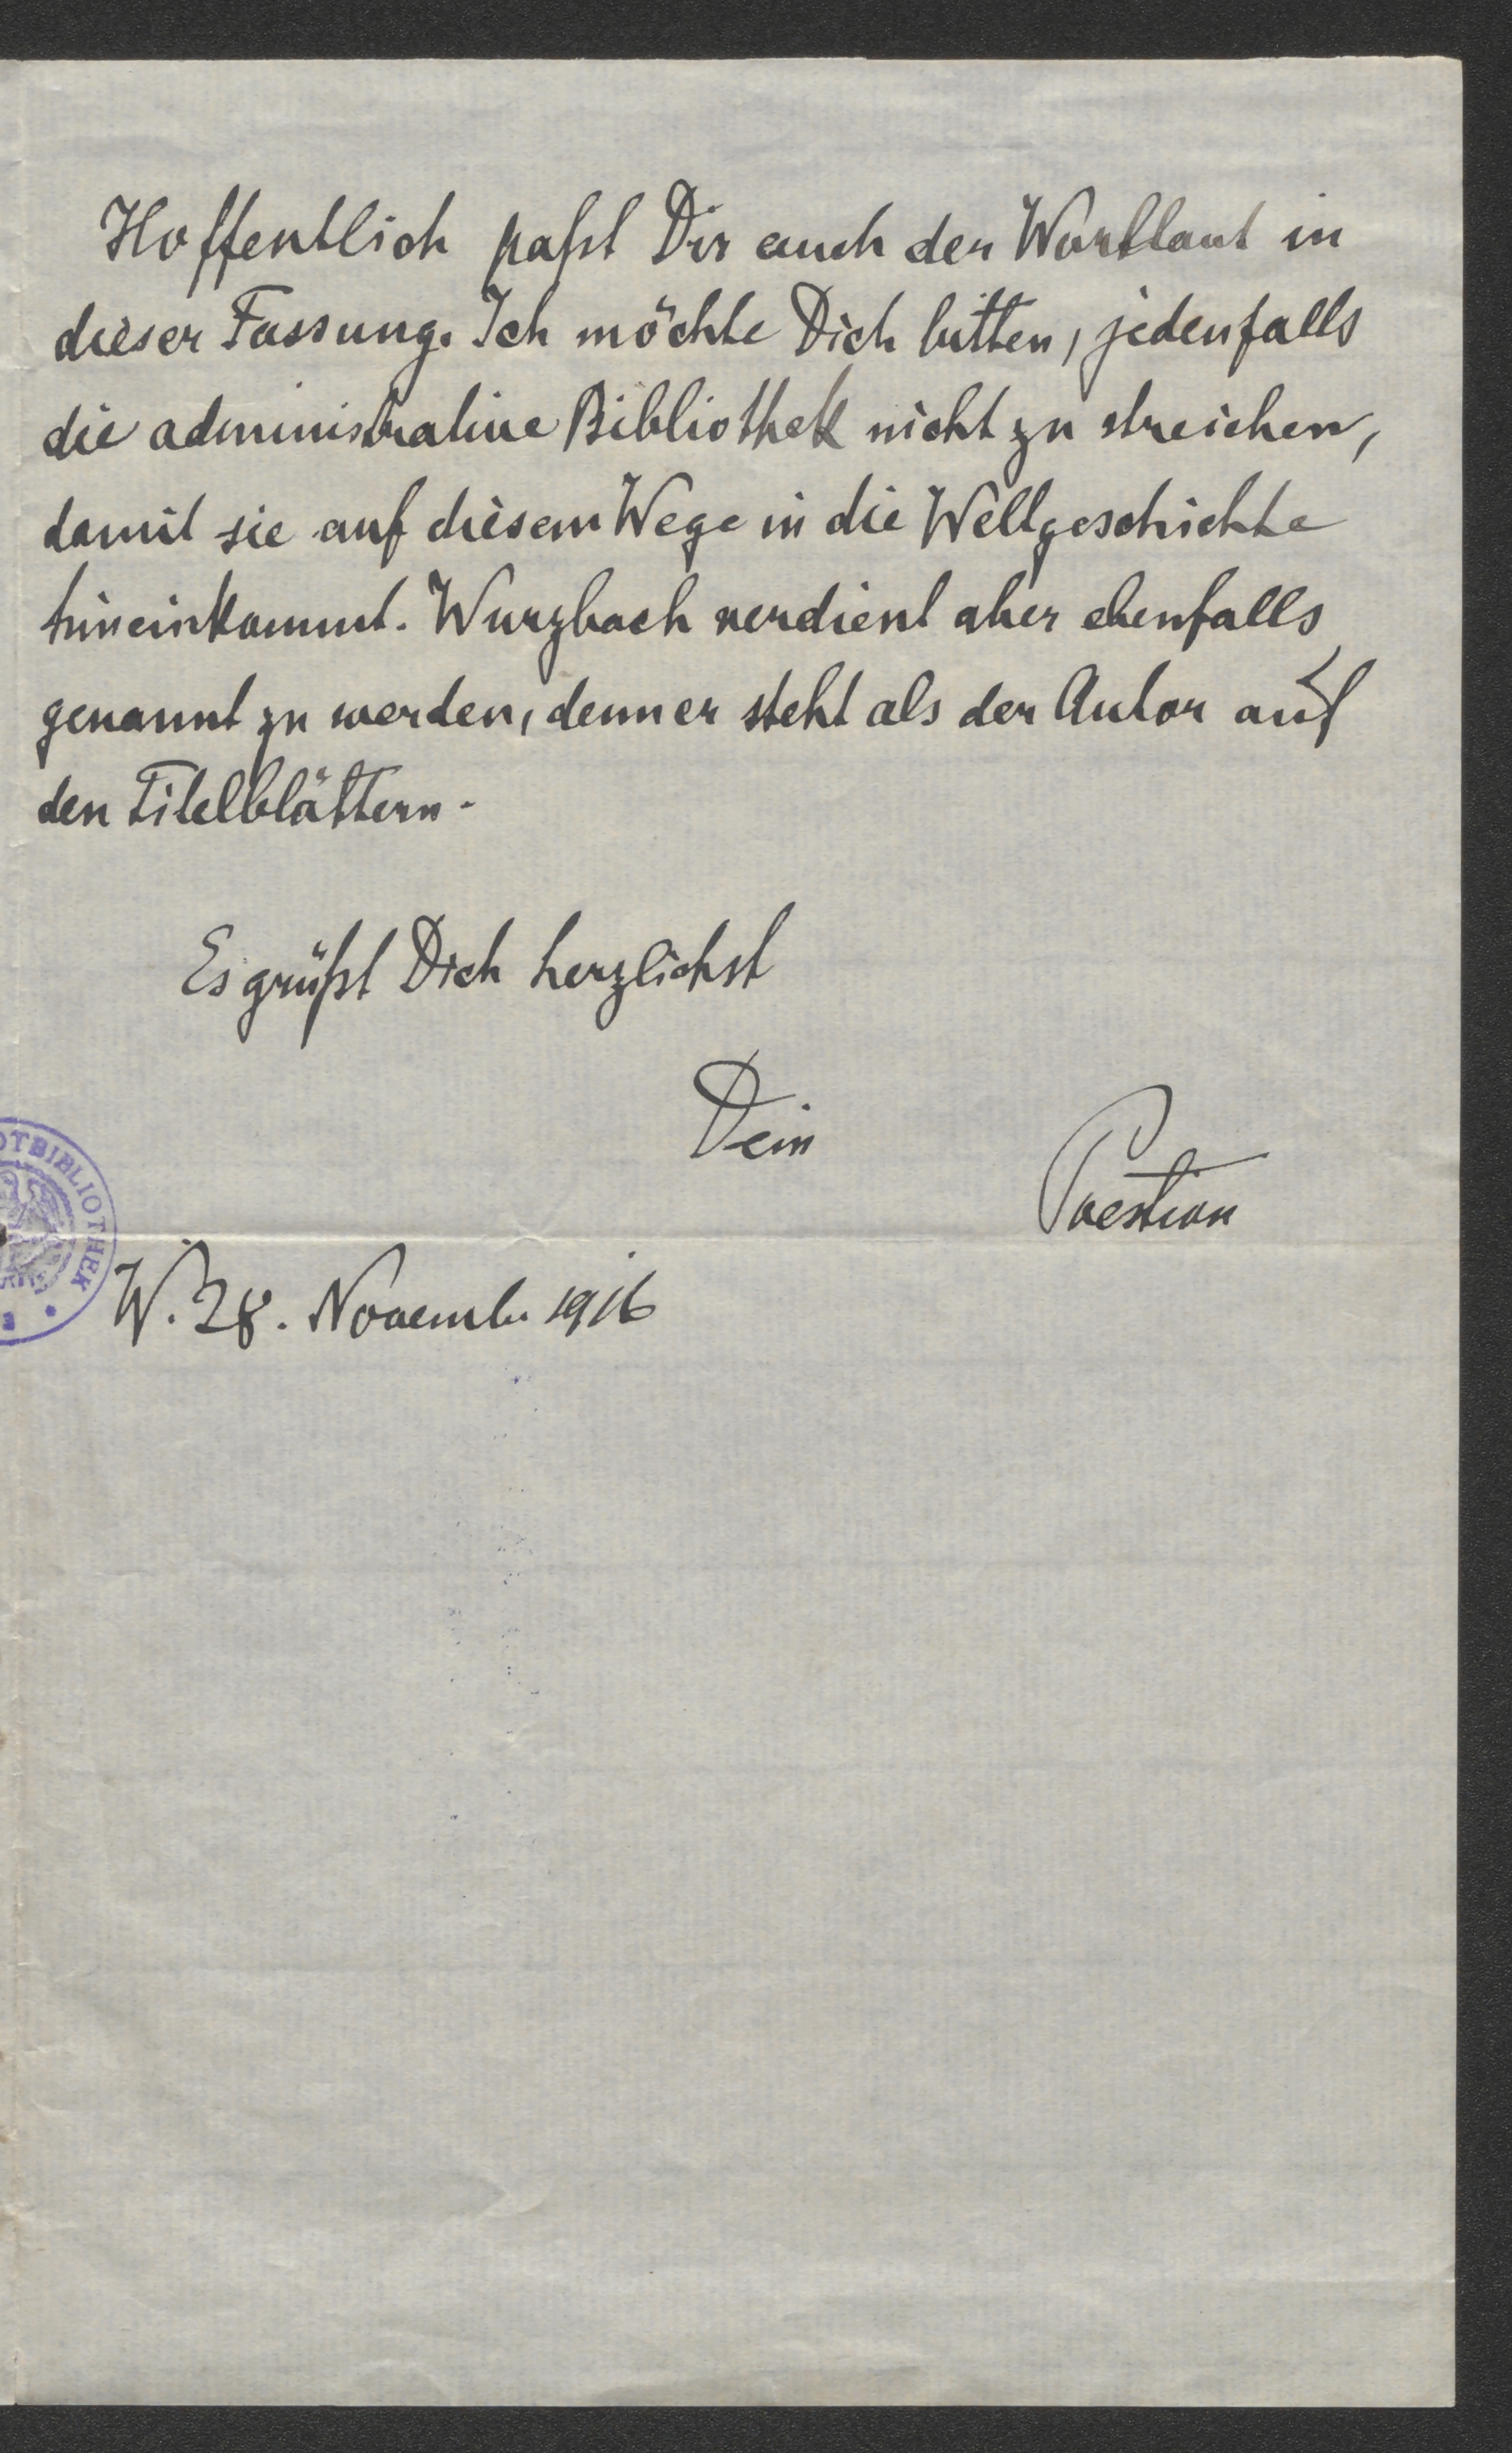 Hoffentlich paßt Dir auch der Wortlaut in
dieser Fassung. Ich möchte Dich bitten, jedenfalls
die administrative Bibliothek nicht zu streichen,
damit sie auf diesem Wege in die Weltgeschichte
hineinkommt. Wurzbach verdient aber ebenfalls
genannt zu werden, denn er steht als der Autor auf
den Titelblättern.
Es grüßt Dich herzlichst
Dein
Poestion
OTBIBLIOTHEK
W. 28. Novemb. 1916